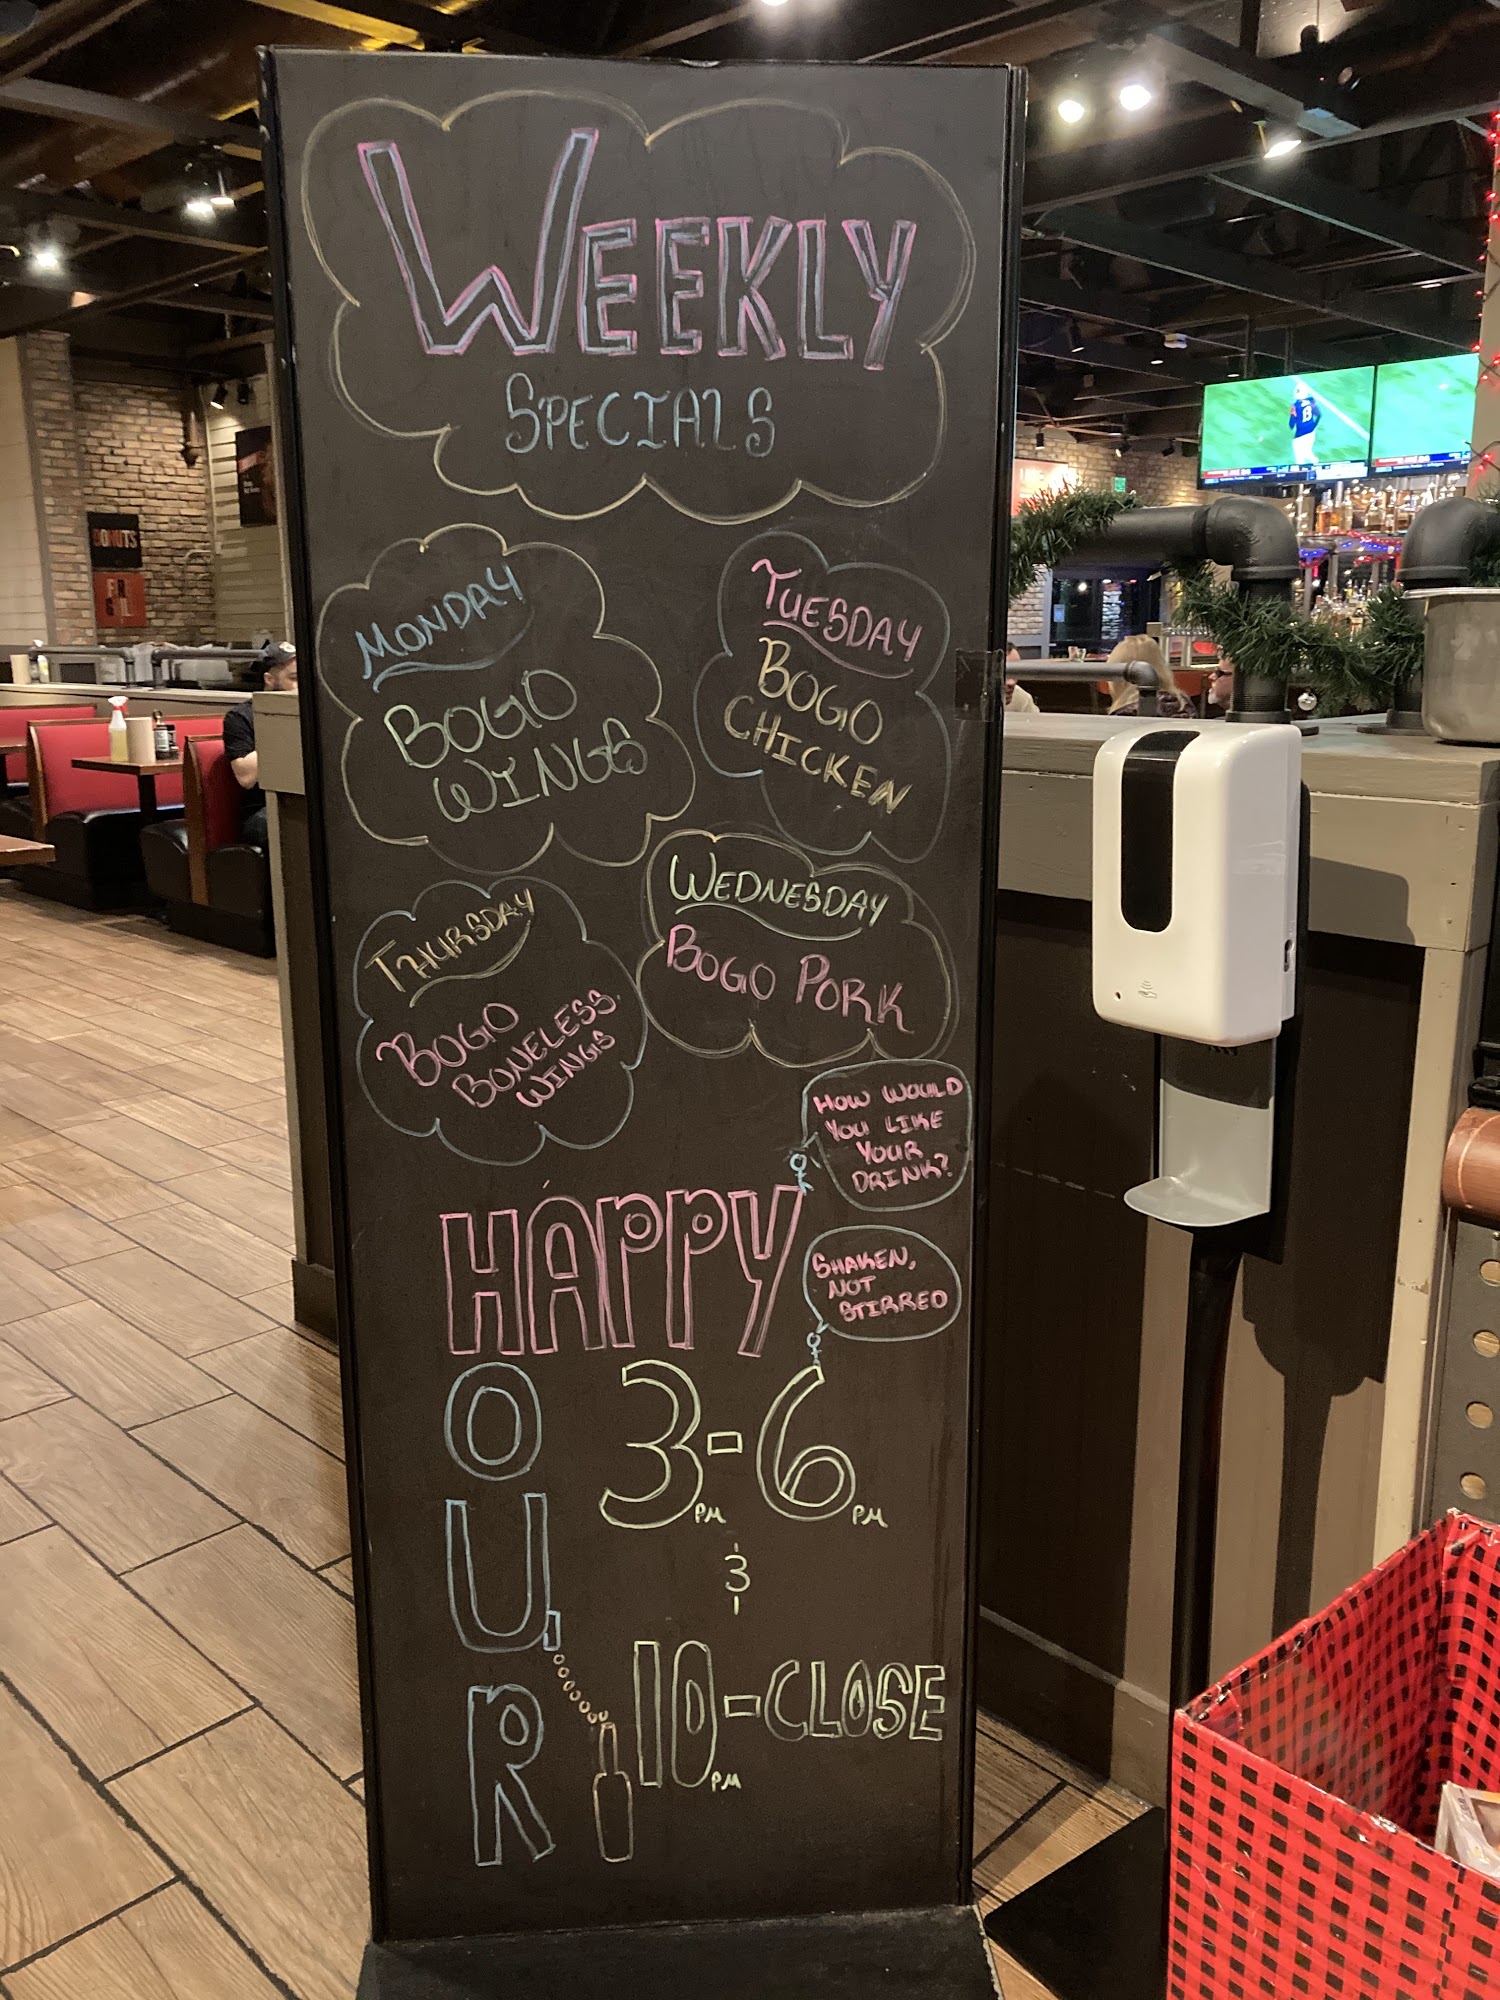 WEEKLY
SPECIALS
MONDAY
BOGO
WINGS
TUESDAY
BOGO
CHICKEN
WEDNESDAY
BOGO PORK
THURSDAY
BOGO
BONELESS
WINGS
HOW WOULD
YOU LIKE
YOUR
DRINK?
SHAKEN,
NOT
STIRRED
HAPPY
HOUR
3PM-6PM
&
10PM-CLOSE
DONUTS
13